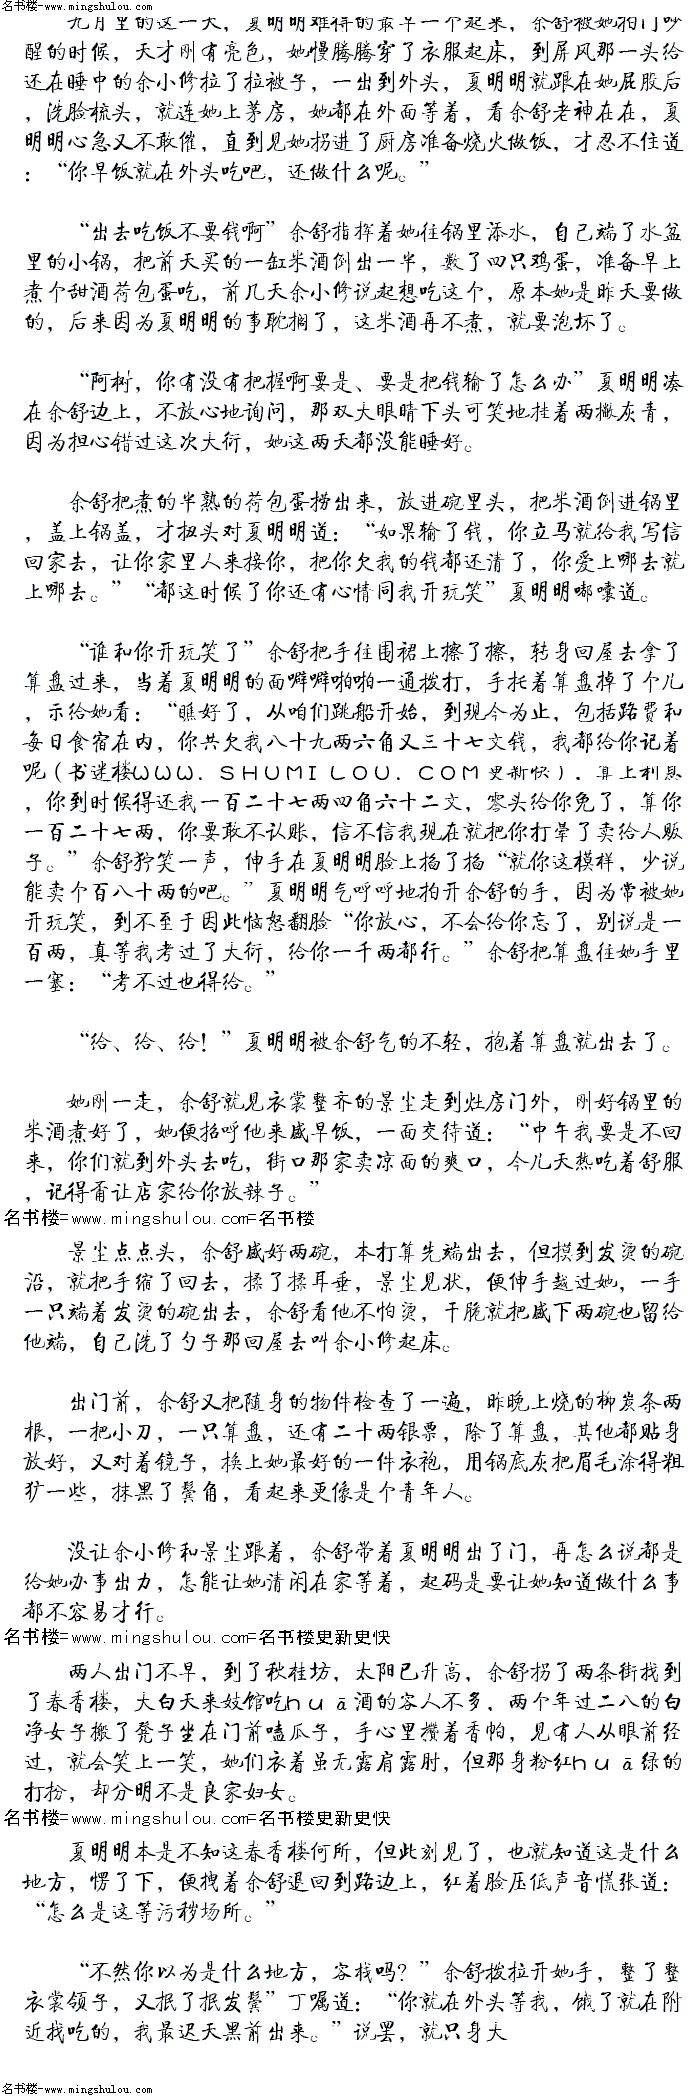 名书楼-www.mingshulou.com
九月里的这一天，夏明明难得的最早一个起来，余舒被她拍门吵
醒的时候，天才刚有亮色，她慢腾腾穿了衣服起床，到屏风那一头给
还在睡中的余小修拉了拉被子，一出到外头，夏明明就跟在她屁股后
，洗脸梳头，就连她上茅房，她都在外面等着，看余舒老神在在，夏
明明心急又不敢催，直到见她拐进了厨房准备烧火做饭，才忍不住道
：“你早饭就在外头吃吧，还做什么呢。”
“出去吃饭不要钱啊”余舒指挥着她往锅里添水，自己端了水盆
里的小锅，把前天买的一缸米酒倒出一半，数了四只鸡蛋，准备早上
煮个甜酒荷包蛋吃，前几天余小修说起想吃这个，原本她是昨天要做
的，后来因为夏明明的事耽搁了，这米酒再不煮，就要泡坏了。
“阿树，你有没有把握啊要是、要是把钱输了怎么办”夏明明凑
在余舒边上，不放心地询问，那双大眼睛下头可笑地挂着两撇灰青，
因为担心错过这次大衍，她这两天都没能睡好。
余舒把煮的半熟的荷包蛋捞出来，放进碗里头，把米酒倒进锅里
，盖上锅盖，才扭头对夏明明道：“如果输了钱，你立马就给我写信
回家去，让你家里人来接你，把你欠我的钱都还清了，你爱上哪去就
上哪去。”“都这时候了你还有心情同我开玩笑”夏明明嘟囔道。
“谁和你开玩笑了”余舒把手往围裙上擦了擦，转身回屋去拿了
算盘过来，当着夏明明的面噼噼啪啪一通拨打，手托着算盘掉了个儿
，示给她看：“瞧好了，从咱们跳船开始，到现今为止，包括路费和
每日食宿在内，你共欠我八十九两六角又三十七文钱，我都给你记着
呢（书迷楼WWW．SHUMILOU．COM更新快）．算上利息
，你到时候得还我一百二十七两四角六十二文，零头给你免了，算你
一百二十七两，你要敢不认账，信不信我现在就把你打晕了卖给人贩
子。”余舒狞笑一声，伸手在夏明明脸上掐了掐“就你这模样，少说
能卖个百八十两的吧。”夏明明气呼呼地拍开余舒的手，因为常被她
开玩笑，到不至于因此恼怒翻脸“你放心，不会给你忘了，别说是一
百两，真等我考过了大衍，给你一千两都行。”余舒把算盘往她手里
一塞：“考不过也得给。”
“给、给、给！”夏明明被余舒气的不轻，抱着算盘就出去了。
她刚一走，余舒就见衣裳整齐的景尘走到灶房门外，刚好锅里的
米酒煮好了，她便招呼他来盛早饭，一面交待道：“中午我要是不回
来，你们就到外头去吃，街口那家卖凉面的爽口，今儿天热吃着舒服
，记得甭让店家给你放辣子。”
名书楼=www.mingshulou.com=名书楼
景尘点点头，余舒盛好两碗，本打算先端出去，但摸到发烫的碗
沿，就把手缩了回去，揉了揉耳垂，景尘见状，便伸手越过她，一手
一只端着发烫的碗出去，余舒看他不怕烫，干脆就把盛下两碗也留给
他端，自己洗了勺子那回屋去叫余小修起床。
出门前，余舒又把随身的物件检查了一遍，昨晚上烧的柳炭条两
根，一把小刀，一只算盘，还有二十两银票，除了算盘，其他都贴身
放好，又对着镜子，换上她最好的一件衣袍，用锅底灰把眉毛涂得粗
犷一些，抹黑了鬓角，看起来更像是个青年人。
没让余小修和景尘跟着，余舒带着夏明明出了门，再怎么说都是
给她办事出力，怎能让她清闲在家等着，起码是要让她知道做什么事
都不容易才行。
名书楼=www.mingshulou.com=名书楼更新更快
两人出门不早，到了秋桂坊，太阳已升高，余舒拐了两条街找到
了春香楼，大白天来妓馆吃huā酒的客人不多，两个年过二八的白
净女子搬了凳子坐在门前嗑瓜子，手心里攒着香帕，见有人从眼前经
过，就会笑上一笑，她们衣着虽无露肩露肘，但那身粉红huā绿的
打扮，却分明不是良家妇女。
名书楼=www.mingshulou.com=名书楼更新更快
夏明明本是不知这春香楼何所，但此刻见了，也就知道这是什么
地方，愣了下，便拽着余舒退回到路边上，红着脸压低声音慌张道：
“怎么是这等污秽场所。”
“不然你以为是什么地方，客栈吗？”余舒拨拉开她手，整了整
衣裳领子，又抿了抿发鬓”丁嘱道：“你就在外头等我，饿了就在附
近找吃的，我最迟天黑前出来。”说罢，就只身大
名书楼-www.mingshulou.com